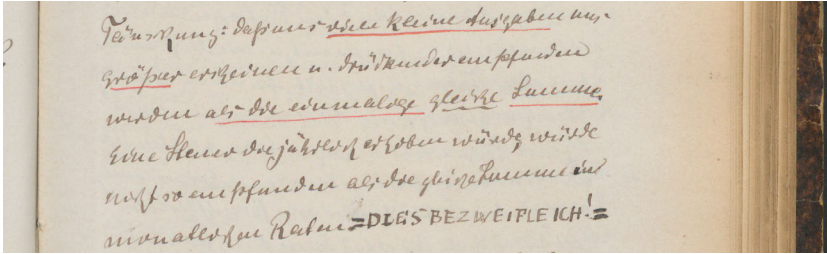 Täuschung: daß uns viele kleine Ausgaben uns
größer erscheinen u. drückender empfunden
werden als die einmalige gleiche Summe.
Eine Steuer die jährlich erhoben würde, würde
nicht so empfunden als die gleiche Summe in
monatlichen Raten =DIES BEZWEIFLE ICH!=